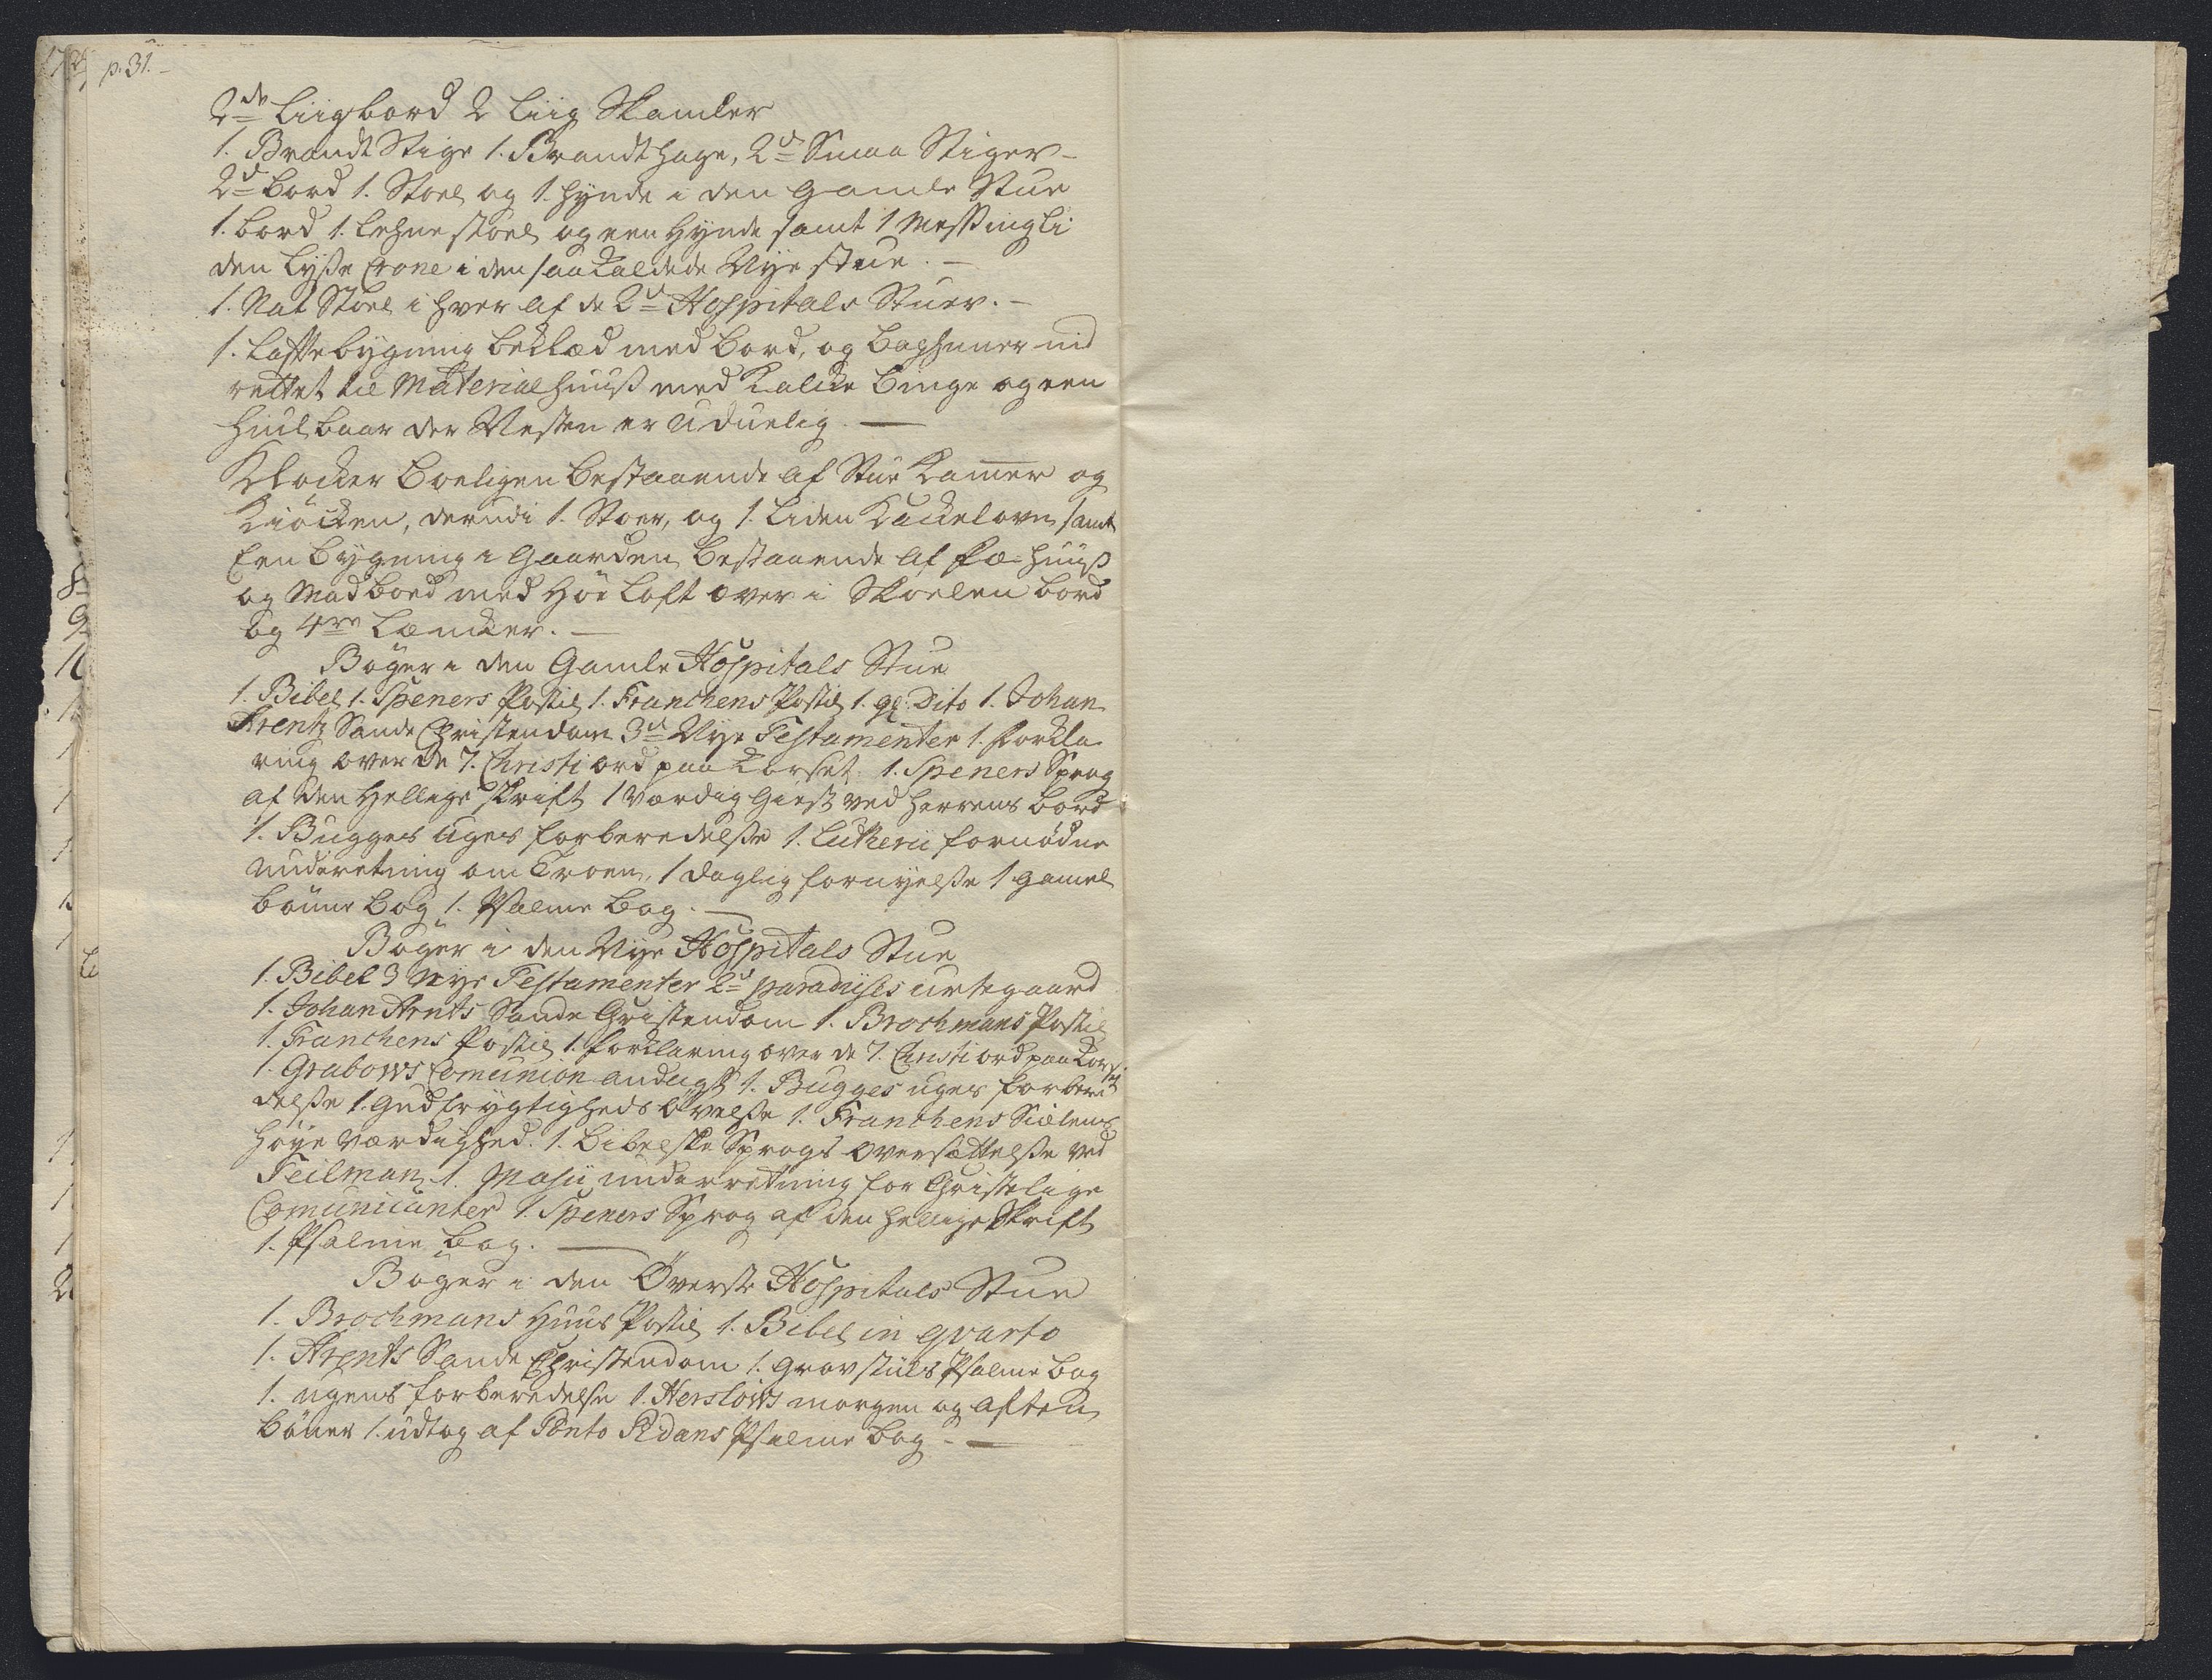 p. 31.
2de Liigbord 2 Liig Skamler
1. Brandt Stige 1. Brandthage, 2d Smaa Stiger
2d bord 1. Stoel og 1. hynde i den gamle Stue
1. bord 1. Lehnestoel og een hynde samt 1 Messing Li
den Lysse Crone i den saakaldede Nye stue.
1. Nat Stoel i hver af de 2d Hospitals Stuer.
1. Loftebygning beklæd med bord, og baghuuer ind
rettet til Materialhuus med Kalcke binge og een
hiulbaar der Nesten er Uduelig.
Klocker boeligen bestaaende af Stue Kamer og
Kiöcken, derudi 1. Stoer, og 1. Liden Kackelovn samt
Een bygning i Gaarden bestaaende af Fæ-huus
og Madboed med Höe Loft over i Skoelen bord
og 4re Læncker.
Böger i den Gamle Hospitals Stue
1. Bibel 1. Speners Postil 1. Franckens Postil 1. gl: Dito 1. Johan
Arentz Sande Christendom 3d Nye Testamenter 1. forkla
ring over de 7. Christi ord paa Korset. 1. Speners Sprog
af den Hellige Skrift 1 Værdig Giest ved Herrens bord
1. Bugges Uges forberedelsse 1. Lutherii fornödne
underetning om Troen, 1 daglig fornyelsse 1 gamel
bönne bog 1. Psalme bog.
Böger i den Nye Hospitals Stue
1. Bibel 3 Nye Testamenter 2d paradiises urtegaard
1. Johan Arnts Sande Christendom 1. Brochmans Postil
1. Franckens Postil 1. forklaring over de 7. Christi ord paa Korset
1. Grabows Comunion andagt 1. Bugges uges forbere
delsse 1. Gudfrygtigheds övelsse 1. Franckens Siælens
höye Værdighed. 1. Bibelske Sprogs oversættelsse ved
Teilman 1. Masii underretning for Christelige
Comunicanter 1. Speners Sprog af den hellige Skrift
1. Psalme bog.
Böger i den Øverste Hospitals Stue
1. Brochmans Huus Postil 1. Bibel in qvarto
1. Arents Sande Christendom 1. grov stiils Psalme bog
1. ugens forberedelse 1. Herslows morgen og aften
böner 1. udtog af Ponto Pidans Psalme bog